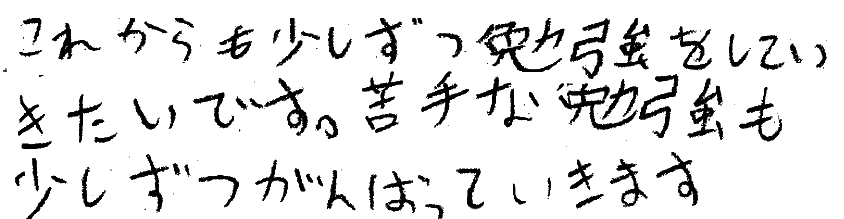 これからも少しずつ勉強をしてい
きたいです。苦手な勉強も
少しずつがんばっていきます